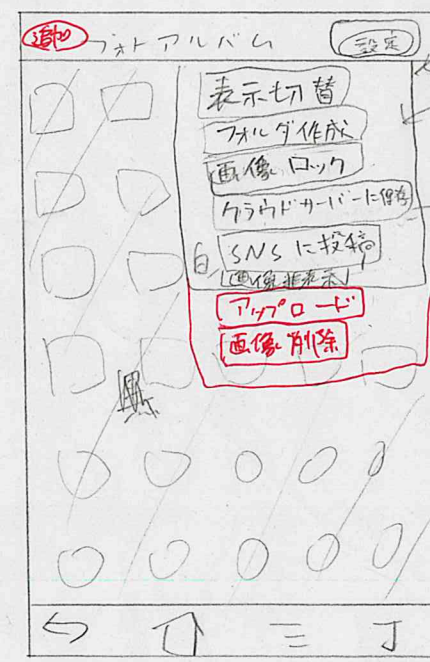 追加 フォトアルバム 設定
表示切替
フォルダ作成
画像ロック
クラウドサーバーに保存
SNSに投稿
画像非表示
アップロード
画像削除